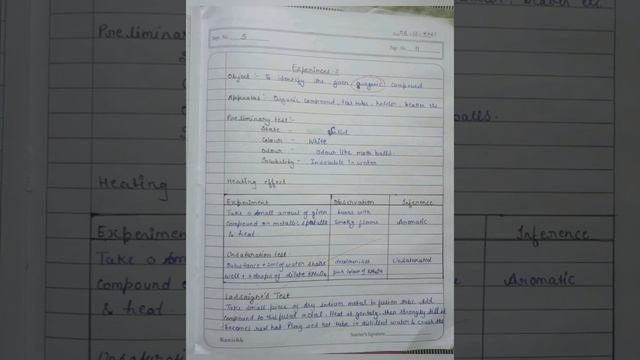 Expt. No. 5
Page No. 11
Experiment-5
Object :- To identify the given organic compound
Apparatus :- Organic compound, test tube, holder, beaker etc
Preliminary test :-
State - Solid
Colour - White
Odour - Odour like moth balls.
Solubility - Insoluble in water
Heating effect
Experiment Observation Inference
Take a small amount of given burns with
compound on metallic smoky flame Aromatic
& heat
Unsaturation test
Substance + of water shake Unsaturated
well + drops of dilute pink colour of
Lassaigne's Test
Take small piece of dry sodium metal in fusion tube. Add
compound to this fused metal. Heat it gently then strongly till it
becomes red hot. Plung red hot tube in distilled water & crush the
Teacher's Signature